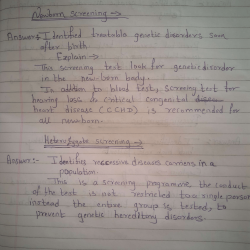 Newborn screening →
Answer:- Identified treatable genetic disorders soon
after birth
Explain:-
This screening test look for genetic disorder
in the newborn baby.
In addition to blood test, screening test for
hearing loss & critical congenital
heart disease (CCHD) is recommended for
all newborn.
Heterozygote screening →
Answer:- Identifies recessive diseases carriers in a
population
This is a screening programme, the conduct
of the test is not restricted to a single person
instead the entire group is tested, to
prevent genetic hereditary disorders.